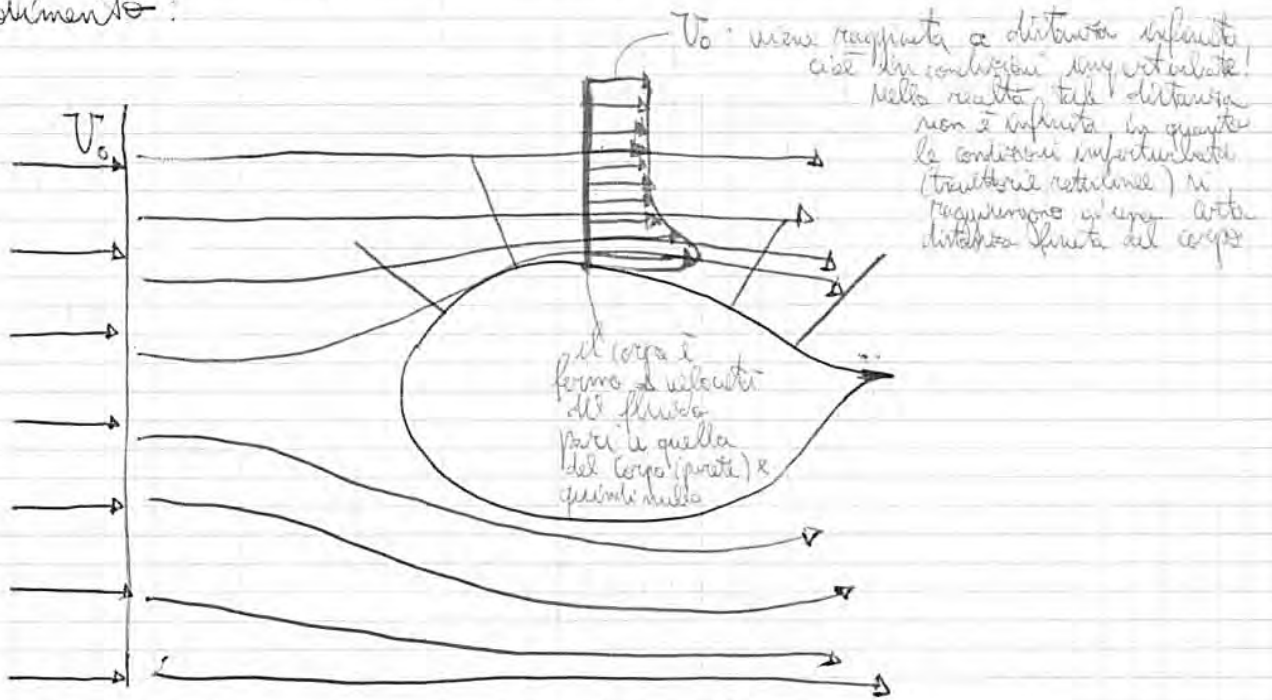 dimento:
V₀: viene raggiunta a distanza infinita,
cioè in condizioni imperturbate!
Nella realtà tale distanza
non è infinita, in quanto
le condizioni imperturbate
(traiettorie rettilinee) si
raggiungono a una certa
distanza finita dal corpo
V₀
il corpo è
fermo velocità
del fluido
pari a quella
del corpo (parete) e
quindi nulla